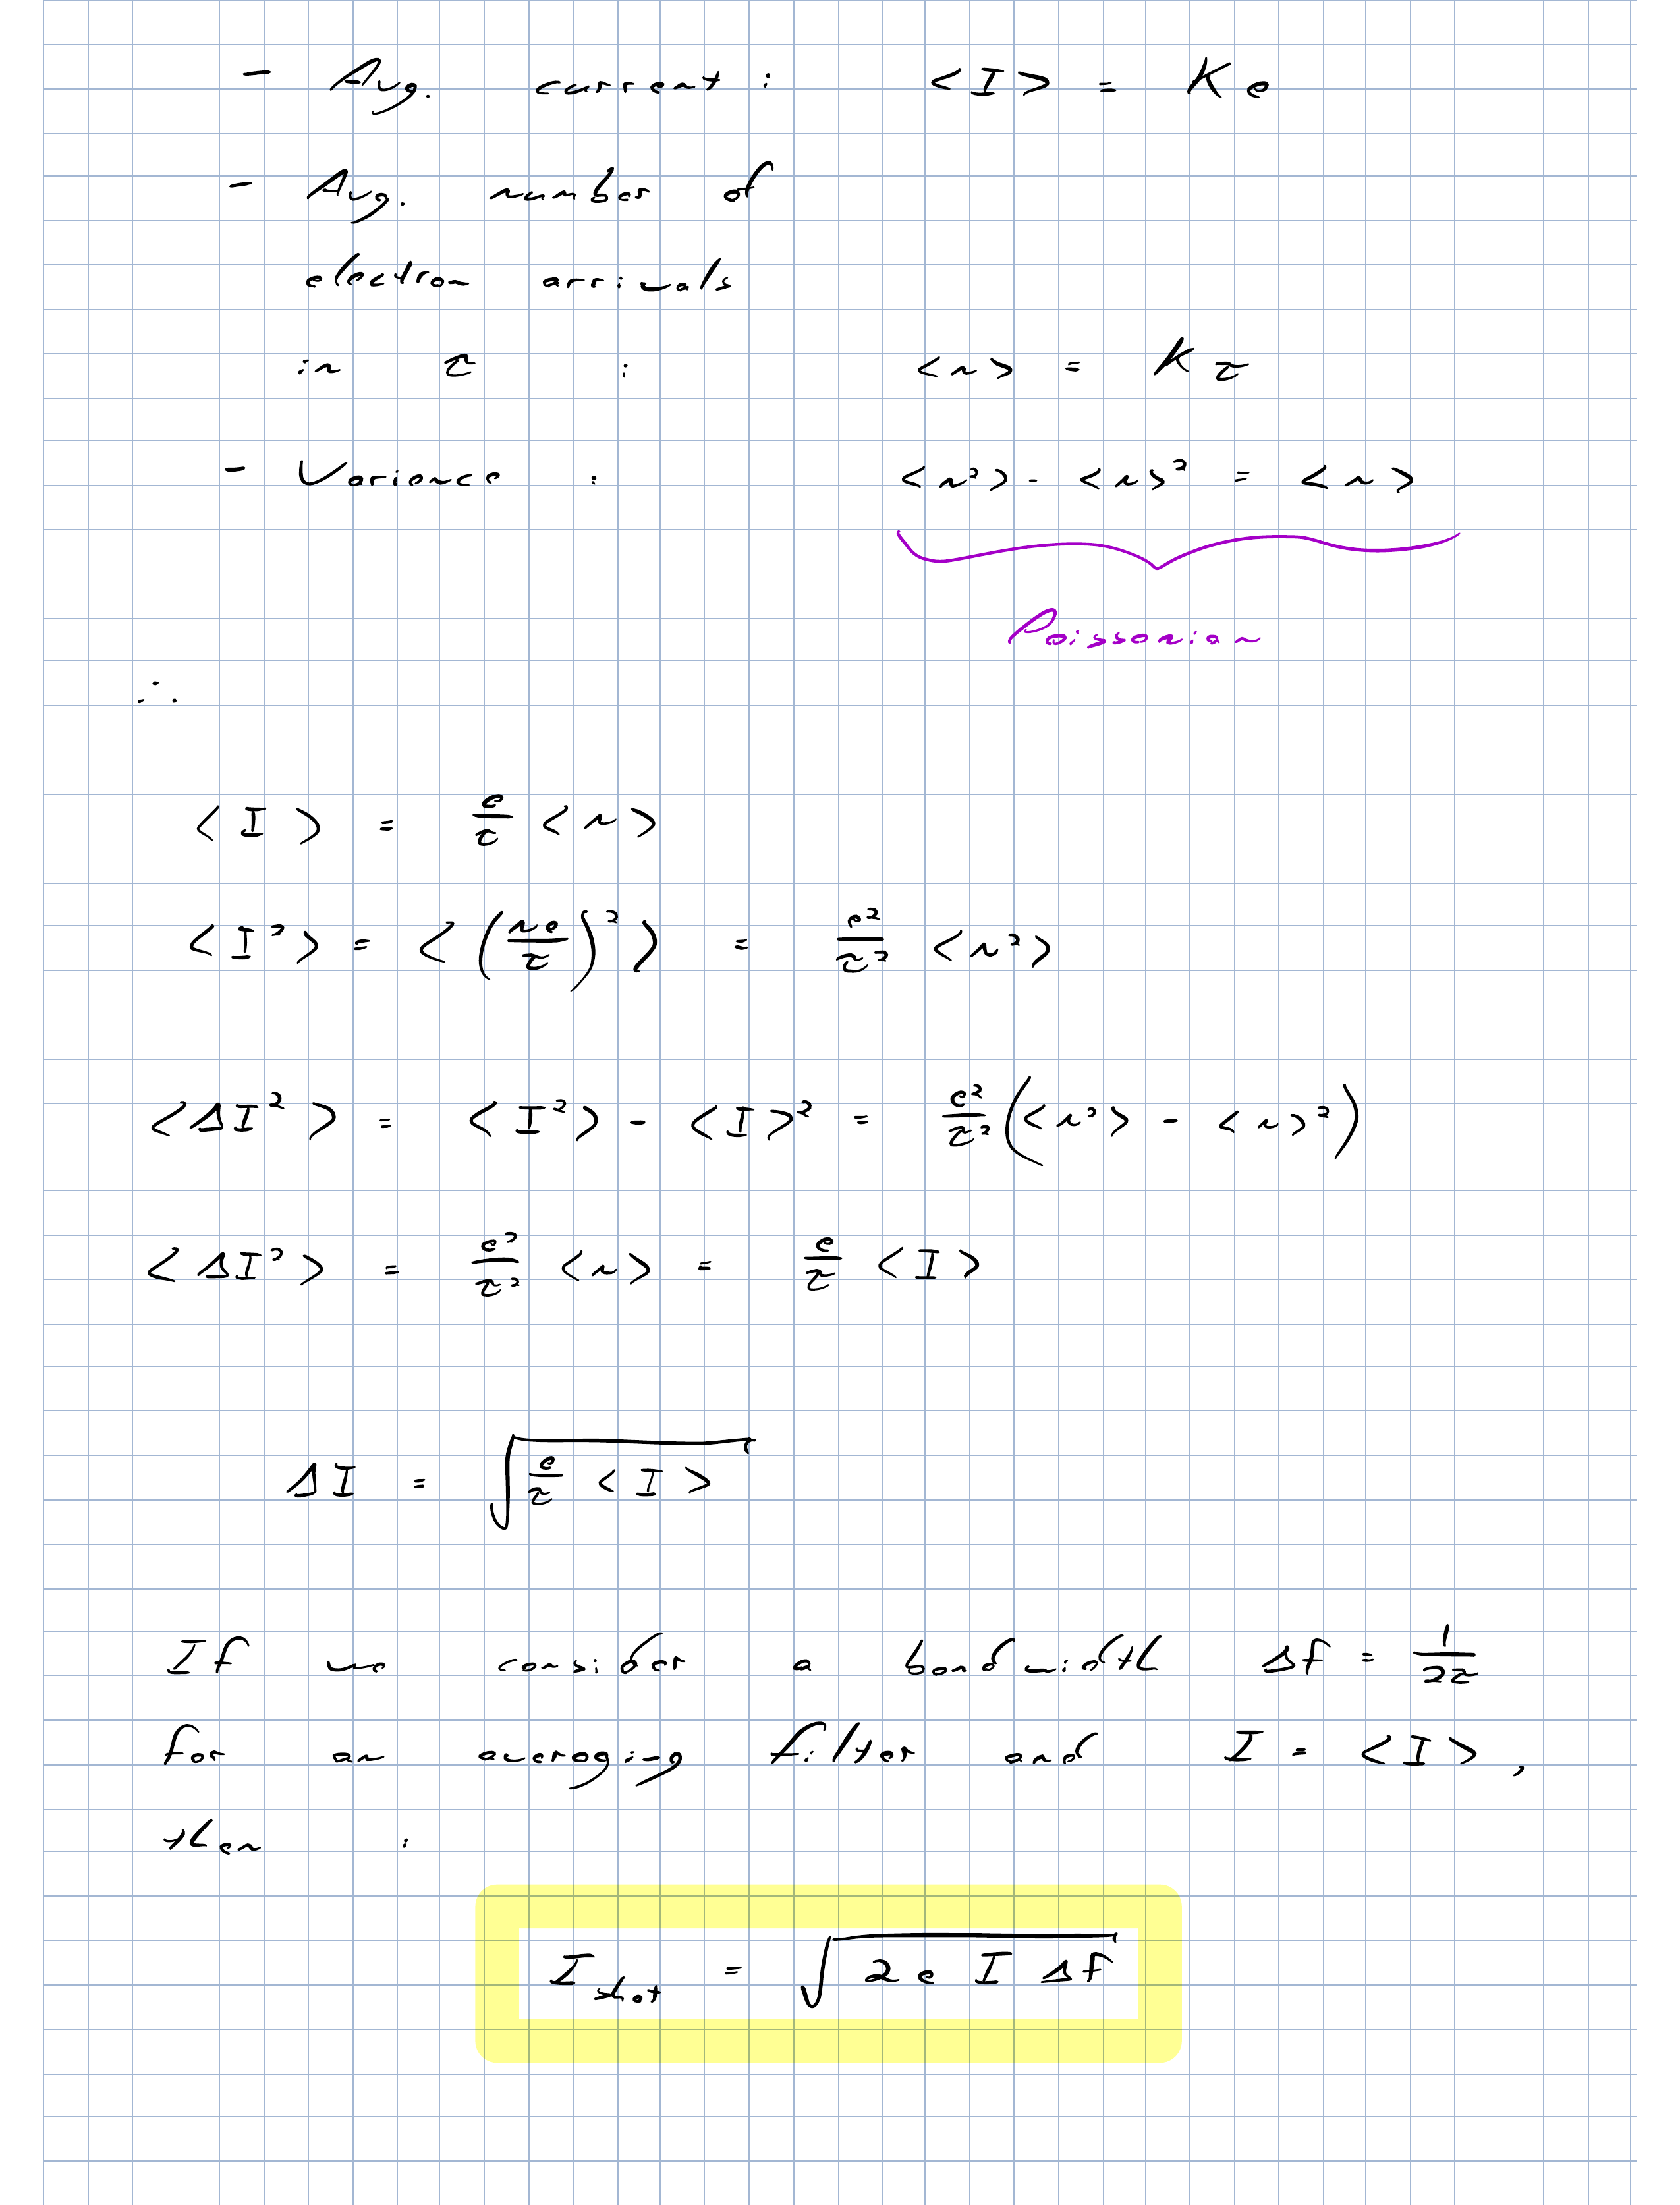 - Avg. current : <I> = K e
- Avg. number of
electron arrivals
in τ : <n> = K τ
- Variance : <n²> - <n>² = <n>
Poissonian
∴
<I> = e/τ <n>
<I²> = <(ne/τ)²> = e²/τ² <n²>
<ΔI²> = <I²> - <I>² = e²/τ² (<n²> - <n>²)
<ΔI²> = e²/τ² <n> = e/τ <I>
ΔI = √(e/τ <I>)
If we consider a bandwidth Δf = 1/2τ
for an averaging filter and I = <I>,
then :
I_shot = √(2 e I Δf)